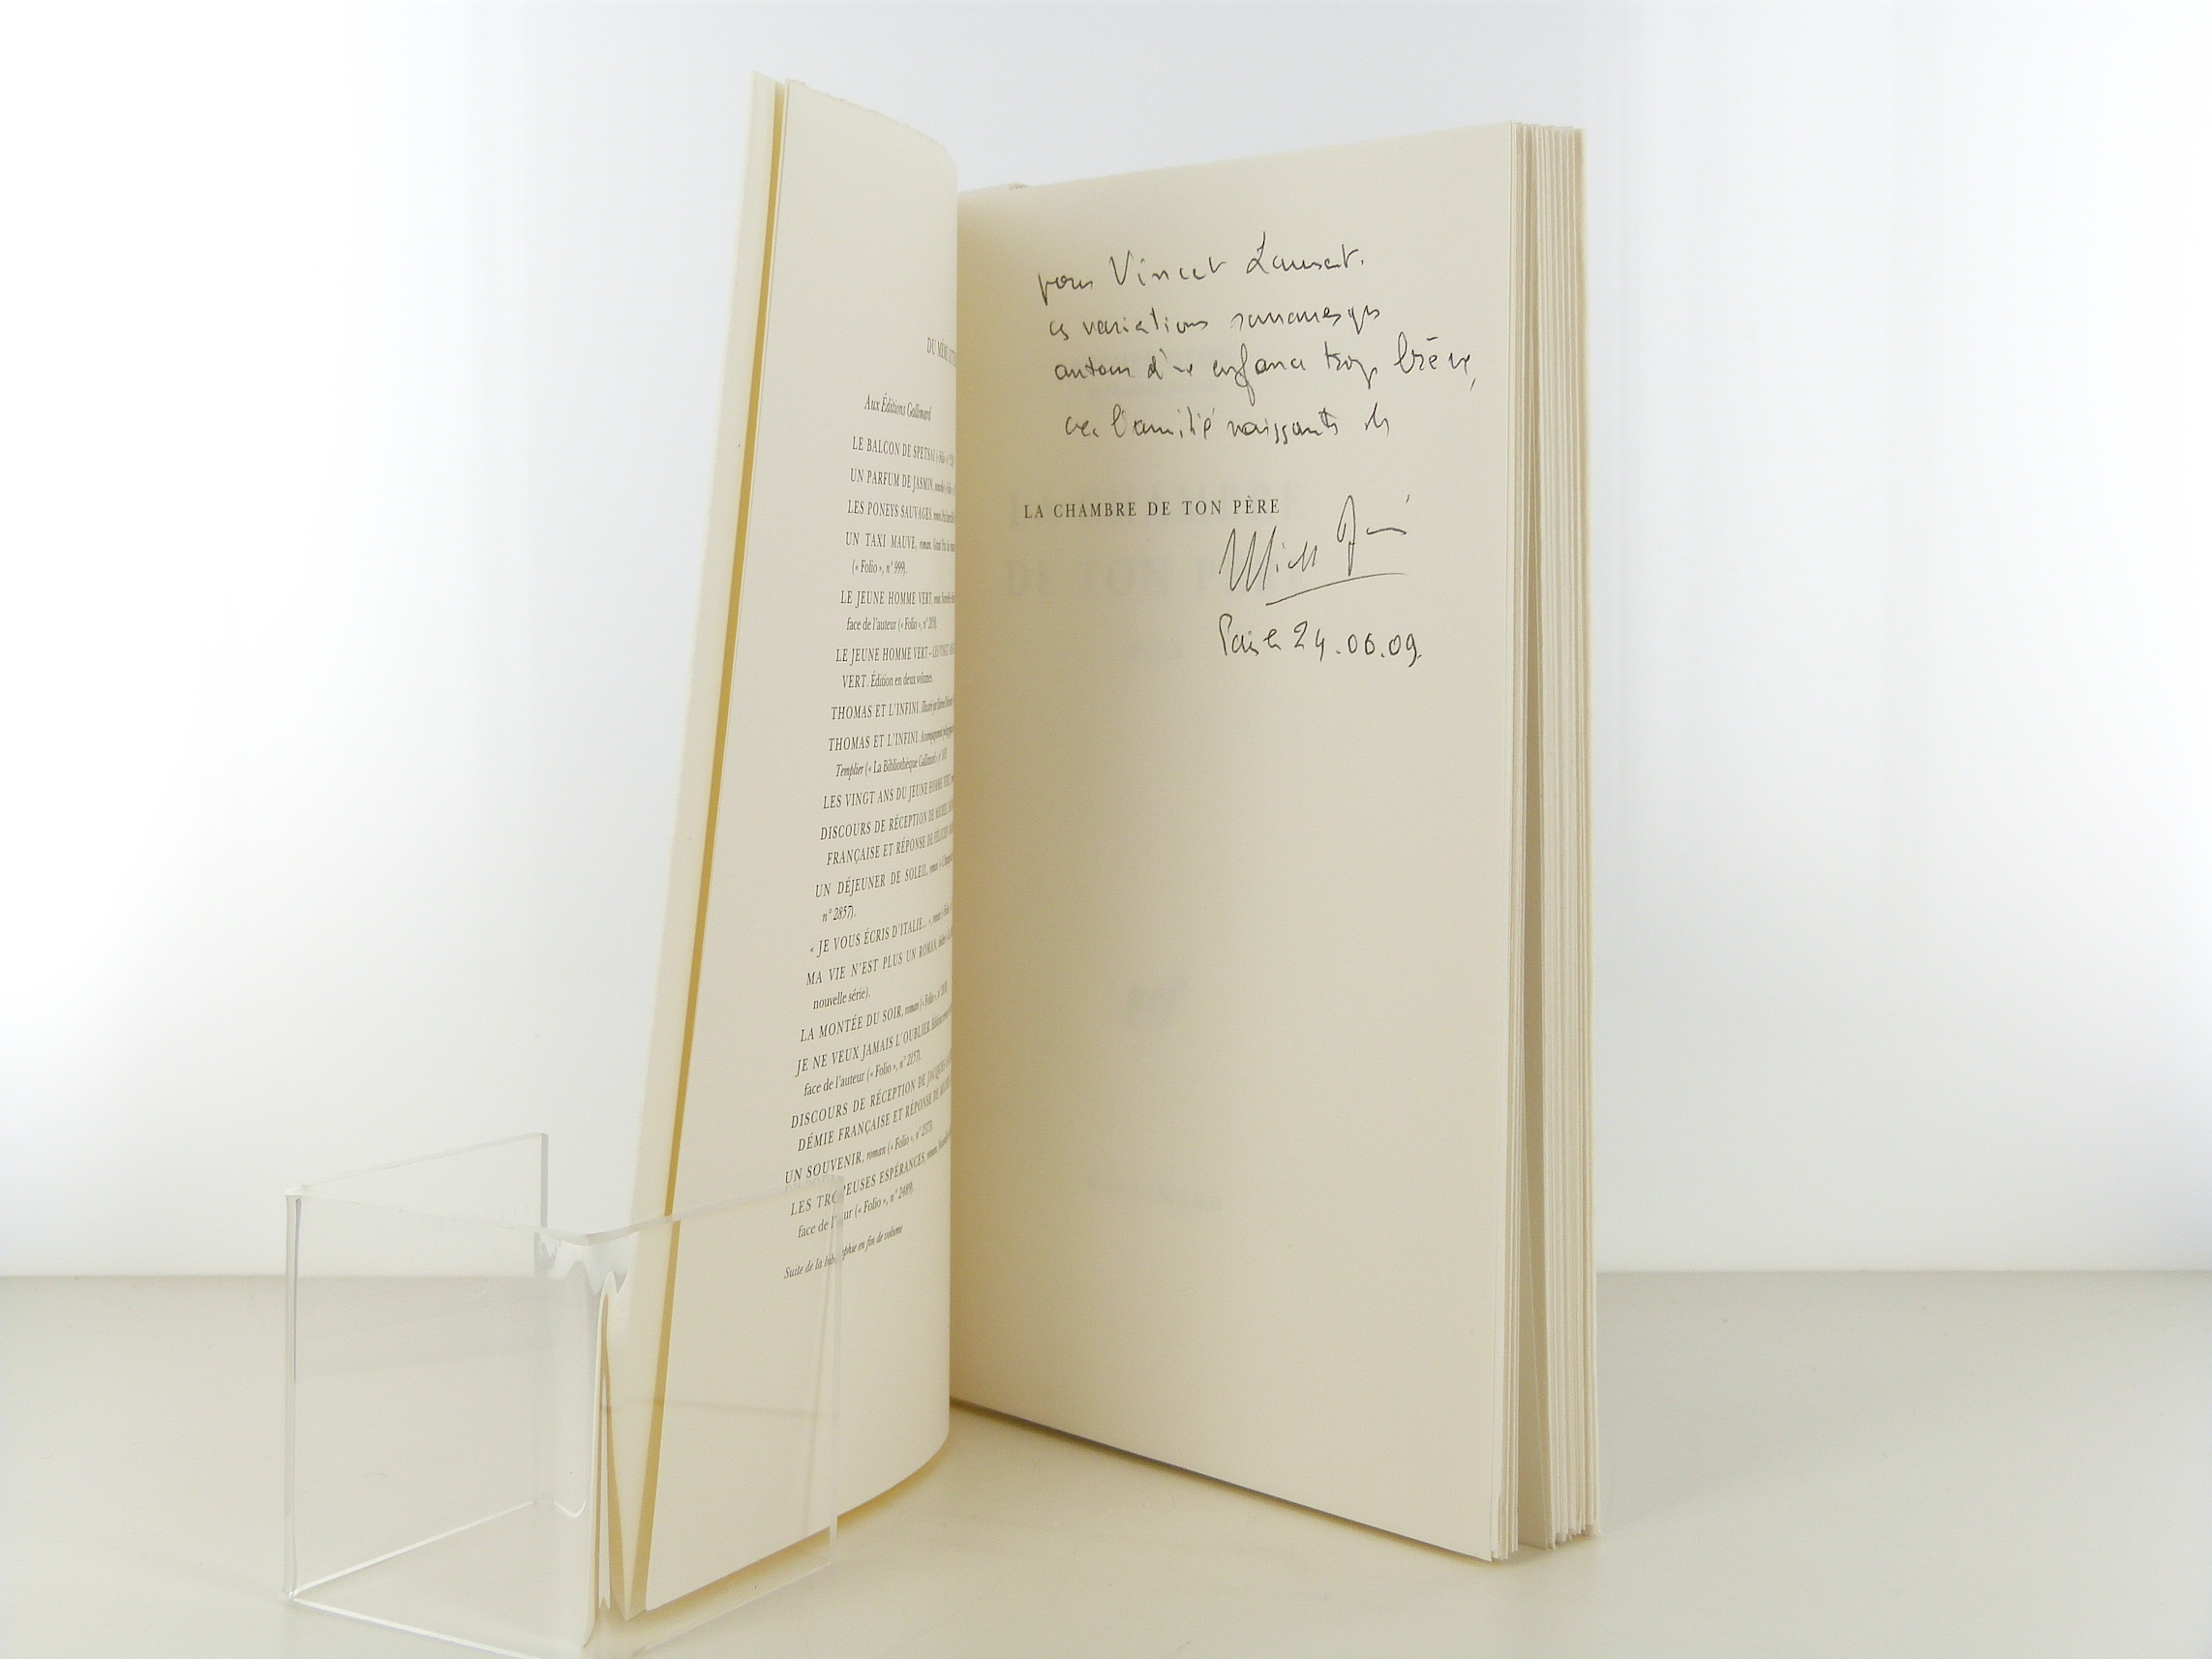 DU MÊME
Aux Éditions Gallimard
LE BALCON DE SPETSAI
UN PARFUM DE JASMIN, nouvelles
LES PONEYS SAUVAGES, roman.
UN TAXI MAUVE, roman. Grand Prix
(« Folio », n° 999).
LE JEUNE HOMME VERT, roman.
face de l'auteur (« Folio », n°
LE JEUNE HOMME VERT - LES VINGT ANS
VERT. Édition en deux volumes.
THOMAS ET L'INFINI. Illustré par
THOMAS ET L'INFINI.
Templier (« La Bibliothèque Gallimard »,
LES VINGT ANS DU JEUNE HOMME VERT,
DISCOURS DE RÉCEPTION DE MICHEL
FRANÇAISE ET RÉPONSE DE FÉLICIEN
UN DÉJEUNER DE SOLEIL, roman
n° 2857).
« JE VOUS ÉCRIS D'ITALIE... », roman
MA VIE N'EST PLUS UN ROMAN,
nouvelle série).
LA MONTÉE DU SOIR, roman (« Folio », n°
JE NE VEUX JAMAIS L'OUBLIER. Édition
face de l'auteur (« Folio », n° 2157).
DISCOURS DE RÉCEPTION DE JACQUES
DÉMIE FRANÇAISE ET RÉPONSE DE
UN SOUVENIR, roman (« Folio », n°
LES TROMPEUSES ESPÉRANCES, roman.
face de l'auteur (« Folio », n° 2489).
Suite de la bibliographie en fin de volume
pour Vincent Laurent.
ces variations romanesques
autour d'une enfance trop brève,
avec l'amitié naissante de
LA CHAMBRE DE TON PÈRE
Michel Déon
Paris le 24.06.09